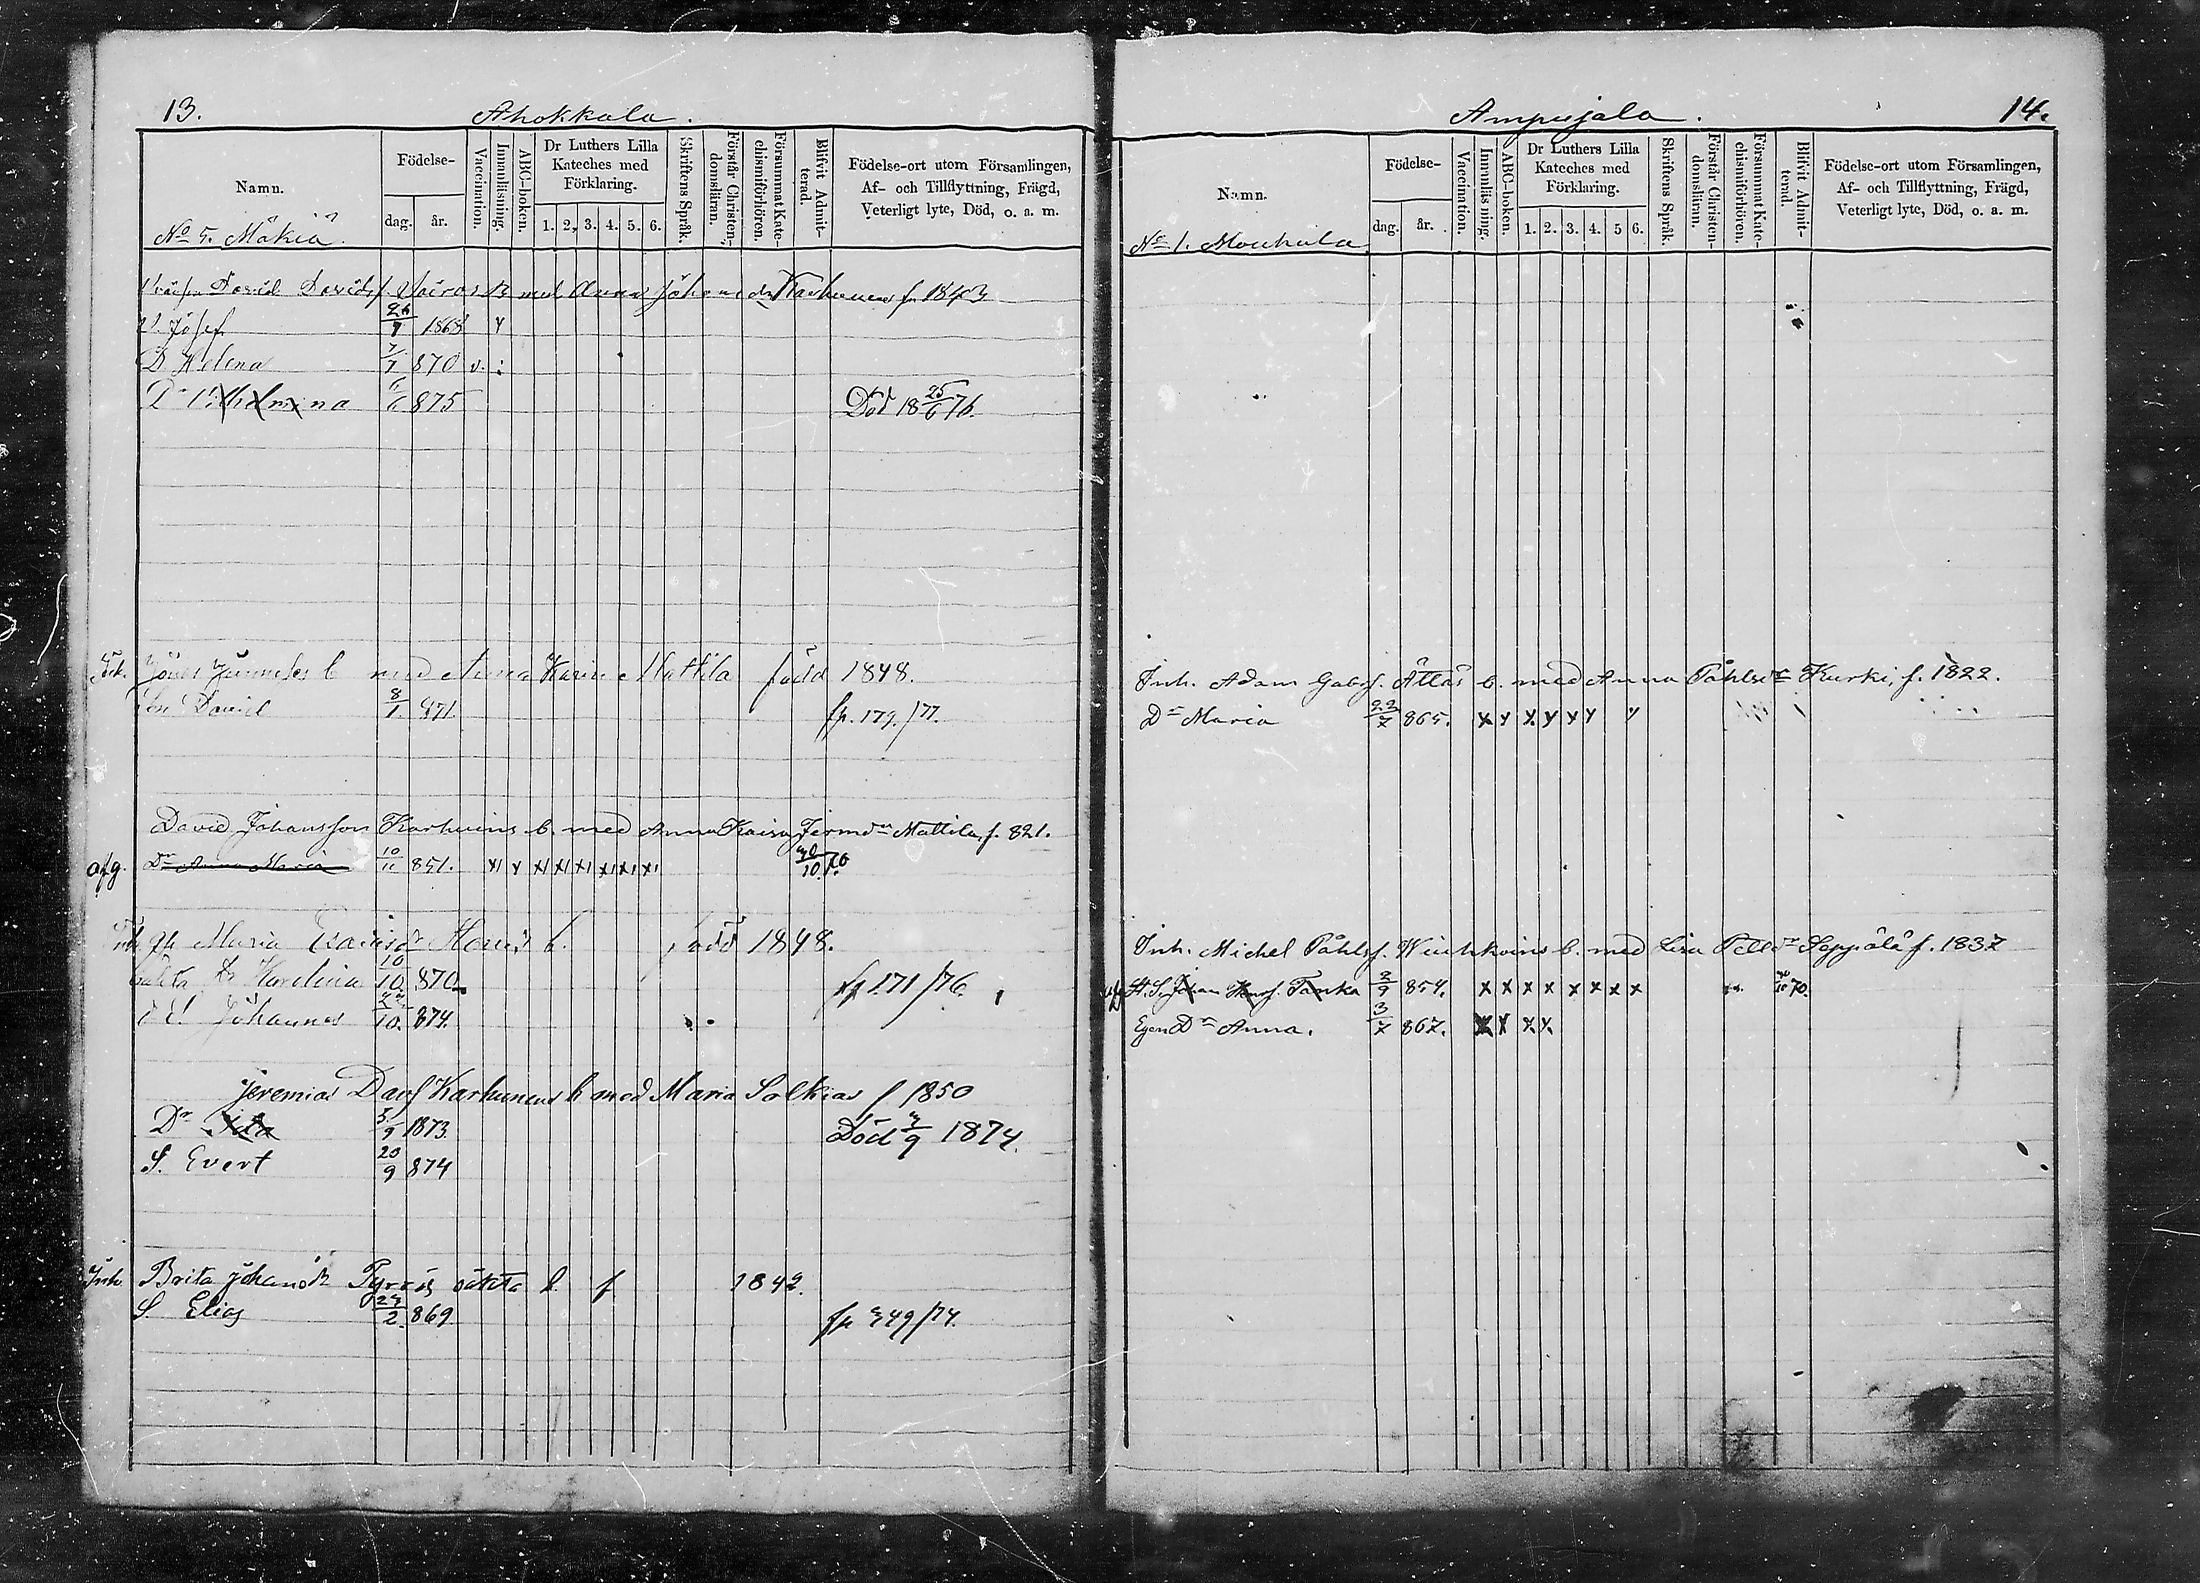 13.
Ahokkala.
Namn.
Födelse-
dag.
år.
Vaccination.
Innanläsning.
ABC-boken.
Dr Luthers Lilla
Kateches med
Förklaring.
1. 2. 3. 4. 5. 6.
Skriftens Språk.
Förstår Christen-
domsläran.
Försummat Kate-
chismiförhören.
Blifvit Admit-
terad.
Födelse-ort utom Församlingen,
Af- och Tillflyttning, Frägd,
Veterligt lyte, Död, o. a. m.
No 5. Mäkiä
David Davids. B med Anna Johansdr Karhunen f. 1843
Josef 1868
D Helena 7/7 870 v.
Dr Vilhelmina 875 Död 18 25/6 76.
Inh. b med Anna Karin Mattila född 1848.
Son David 8/1. 871. fp. 179./77.
David Johansson Karhuins b. med Anna Kaisa Jerm dr Mattila, f. 821.
afg. Dr Anna Maria 10/11 851. x x x x x x x x 30/10 70.
Inh Maria b. född 1848.
oäkta Dr Karolina 10/10 870 fp 171/76.
Johannes 10. 874.
Jeremias Davs Karhunens b med Maria Solkias f 1850
Dr Ida 5/9 1873. Död 3/9 1874.
S. Evert 20/9 874
Inh. Brita Johansdr oäkta b. f 1842.
S. Elias 23/2. 869. fp 349/74.
14.
Ampujala.
Namn.
Födelse-
dag.
år.
Vaccination.
Innanläsning.
ABC-boken.
Dr Luthers Lilla
Kateches med
Förklaring.
1. 2. 3. 4. 5 6.
Skriftens Språk.
Förstår Christen-
domsläran.
Försummat Kate-
chismiförhören.
Blifvit Admit-
terad.
Födelse-ort utom Församlingen,
Af- och Tillflyttning, Frägd,
Veterligt lyte, Död, o. a. m.
No 1. Mouhula
Inh. Adam Gabrs. Ättäs b. med Anna Påhlsdr Kurki, f. 1822.
Dr Maria 22/7 865. x x x x x x x
Inh. Michel Påhlss. b. med Lisa Pelldr Seppälä f. 1837
afg St. S. Johan Henrs. Tanka 2/9 854. x x x x x x x x 70.
Egen Dr Anna. 3/7 867. x x x x